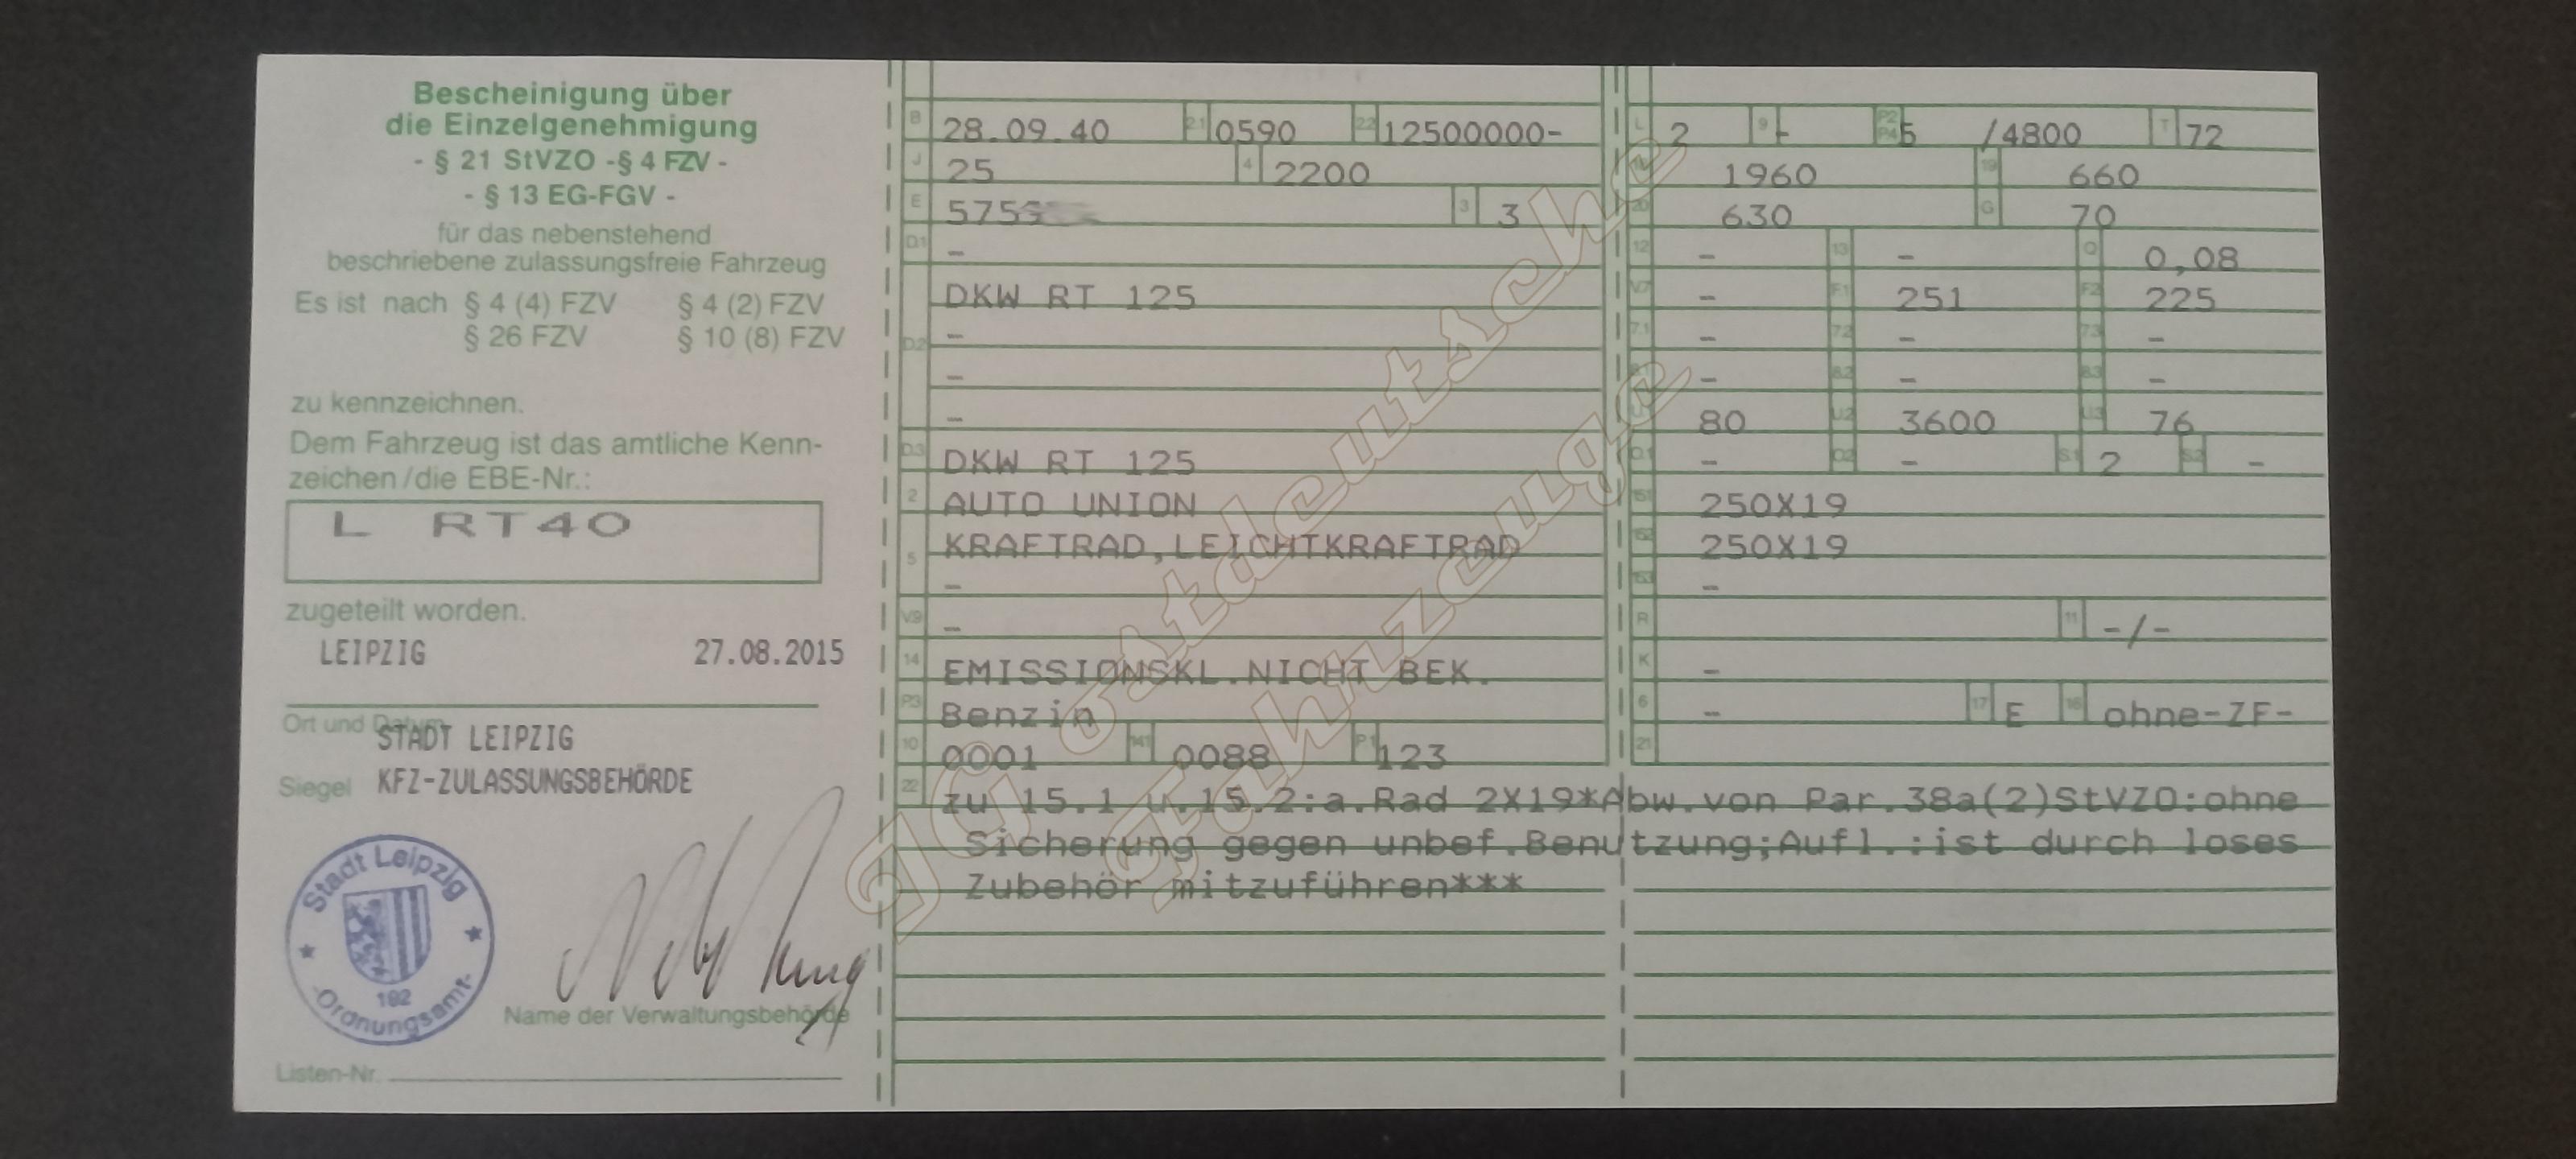 Bescheinigung über
die Einzelgenehmigung
- § 21 StVZO -§ 4 FZV -
- § 13 EG-FGV -
für das nebenstehend
beschriebene zulassungsfreie Fahrzeug
Es ist nach § 4 (4) FZV § 4 (2) FZV
§ 26 FZV § 10 (8) FZV
zu kennzeichnen.
Dem Fahrzeug ist das amtliche Kenn-
zeichen/die EBE-Nr.:
L RT40
zugeteilt worden.
LEIPZIG 27.08.2015
Ort und Datum
STADT LEIPZIG
Siegel KFZ-ZULASSUNGSBEHÖRDE
Stadt Leipzig
182
-Ordnungsamt-
Name der Verwaltungsbehörde
Listen-Nr.
B 28.09.40 2.1 0590 2.2 12500000-
J 25 4 2200
E 575 3 3
D.1 -
DKW RT 125
D.2 -
-
-
D.3 DKW RT 125
2 AUTO UNION
5 KRAFTRAD,LEICHTKRAFTRAD
-
V9 -
14 EMISSIONSKL.NICHT BEK.
P3 Benzin
10 0001 14.1 0088 P.1 123
L 2 9 - P2 P4 5 /4800 T 72
18 1960 19 660
20 630 G 70
12 - 13 - Q 0,08
V7 - F.1 251 F2 225
7.1 - 7.2 - 7.3 -
8.1 - 8.2 - 8.3 -
U1 80 U2 3600 U3 76
O.1 - O2 - S1 2 S2 -
15.1 250X19
15.2 250X19
15.3 -
R 11 -/-
K -
6 - 17 E 16 ohne-ZF-
21
22 zu 15.1 u.15.2:a.Rad 2X19*Abw.von Par.38a(2)StVZO:ohne
Sicherung gegen unbef.Benutzung;Aufl.:ist durch loses
Zubehör mitzuführen***
ostdeutsche
Fahrzeuge